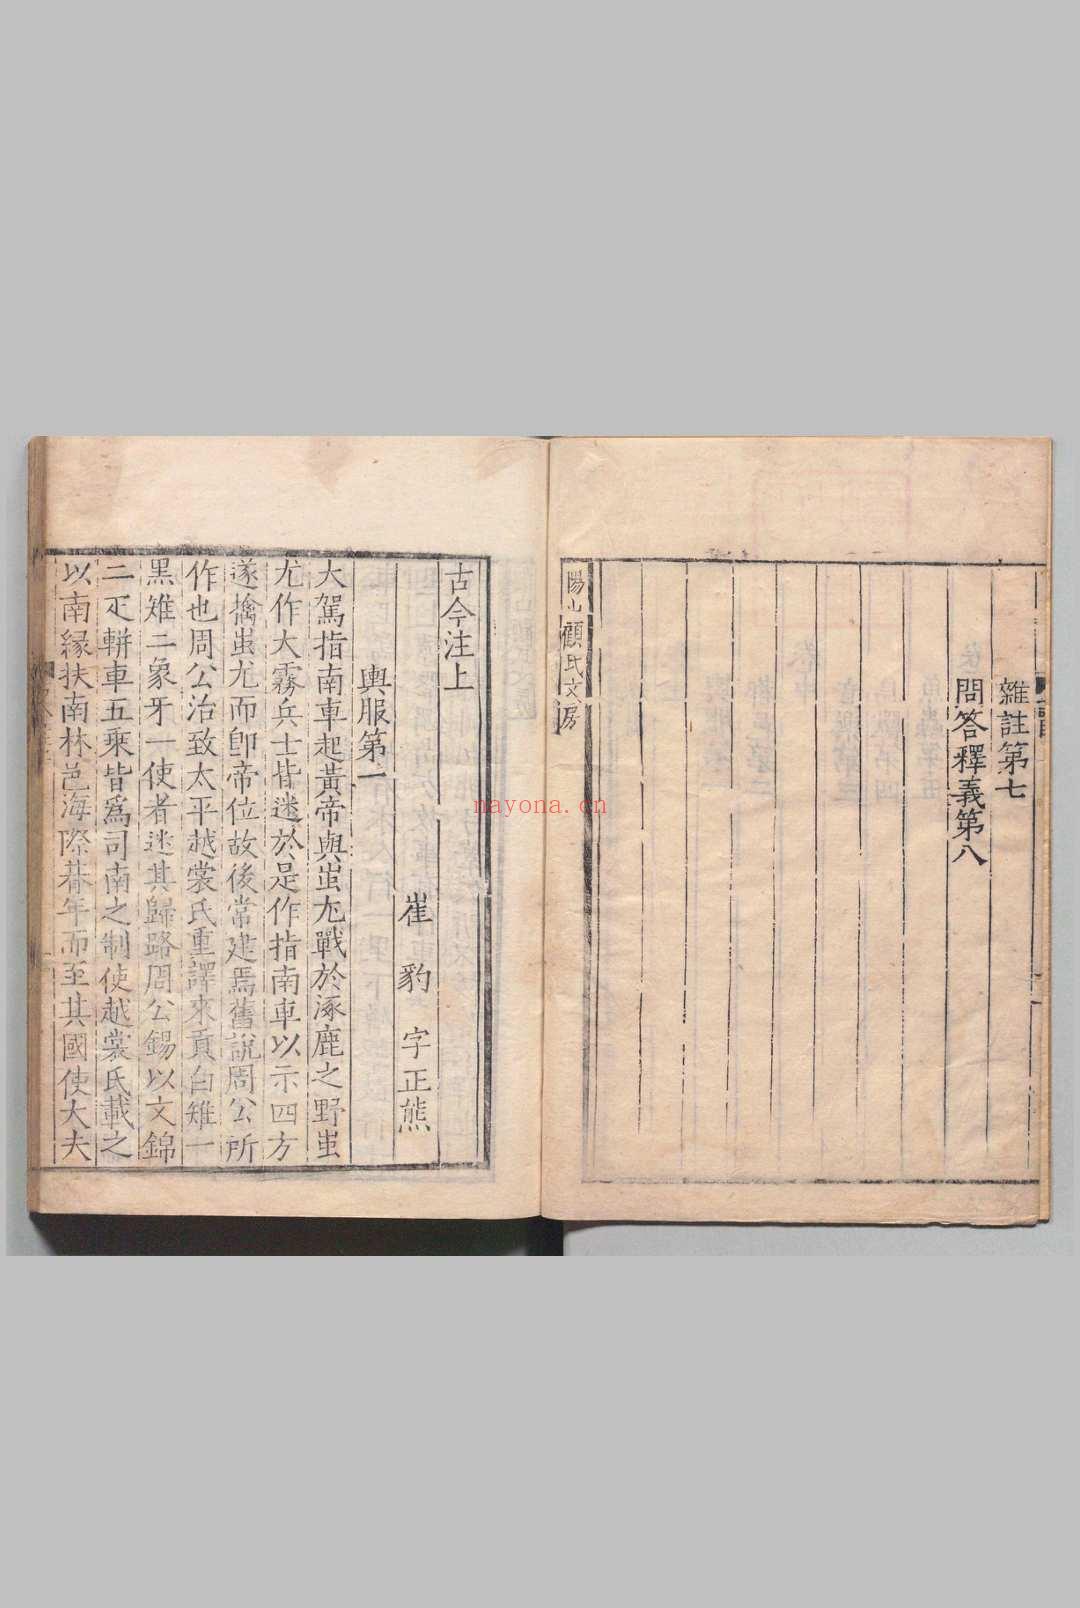 雜註第七
問答釋義第八
陽山顧氏文房
古今注上
崔豹字正熊
輿服第一
大駕指南車起黃帝與蚩尤戰於涿鹿之野蚩
尤作大霧兵士皆迷於是作指南車以示四方
遂擒蚩尤而卽帝位故後常建焉舊說周公所
作也周公治致太平越裳氏重譯來貢白雉一
黑雉二象牙一使者迷其歸路周公錫以文錦
二疋軿車五乘皆爲司南之制使越裳氏載之
以南緣扶南林邑海際朞年而至其國使大夫
nayona.cn